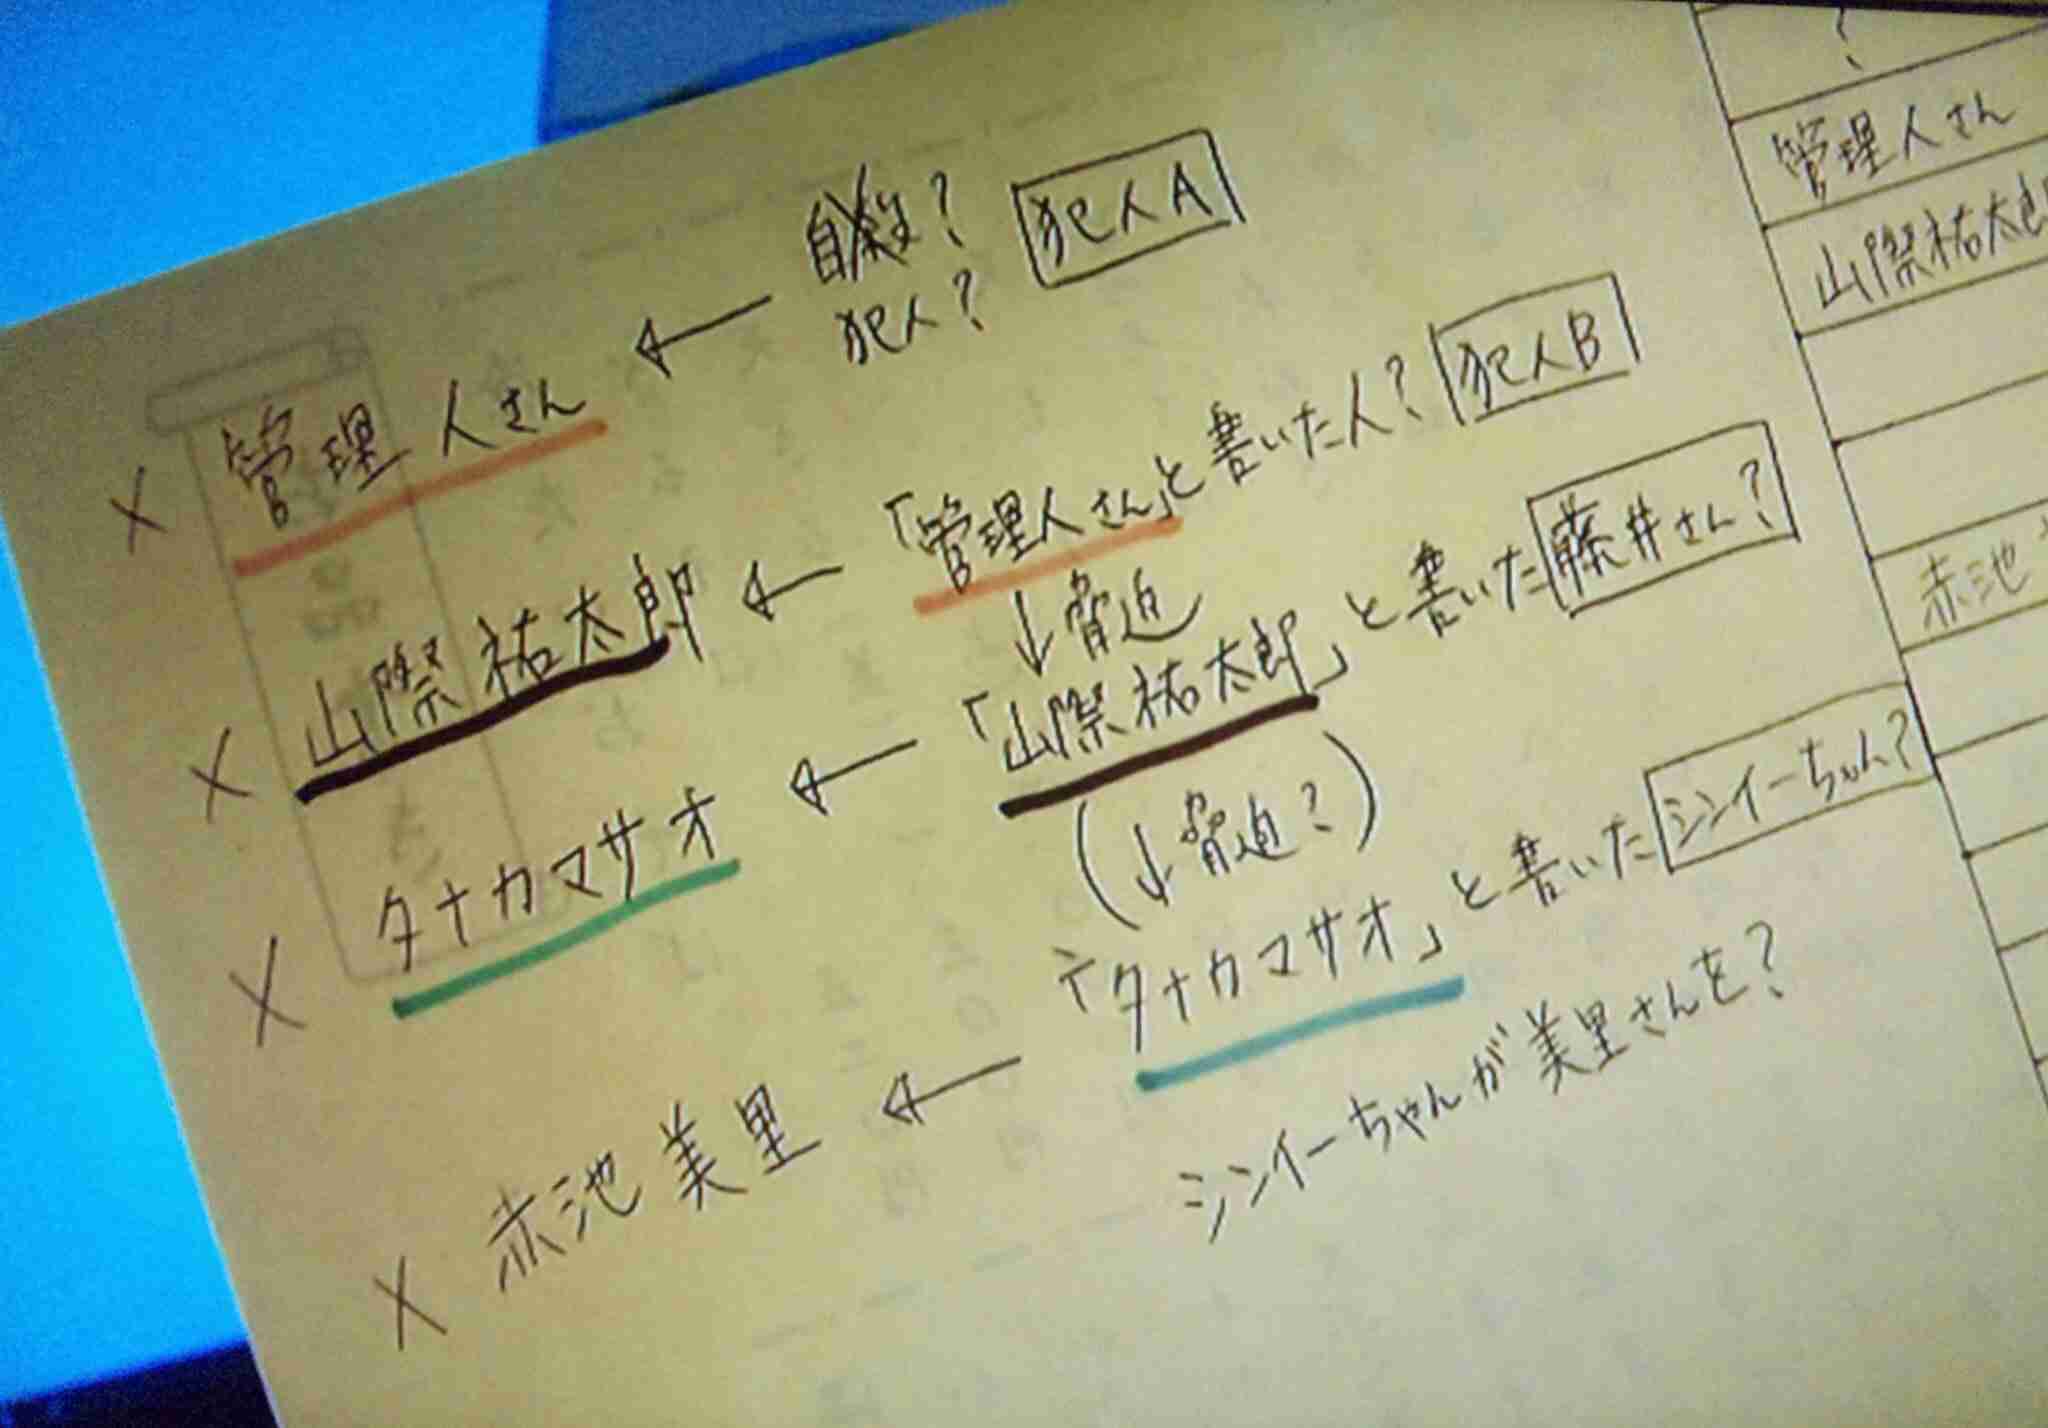 自殺? 犯人A
犯人?
× 管理人さん ←
「管理人さん」と書いた人? 犯人B
↓脅迫
× 山際祐太郎 ←
「山際祐太郎」と書いた藤井さん?
(↓脅迫?)
× タナカマサオ ←
「タナカマサオ」と書いたシンイーちゃん?
× 赤池美里 ←
シンイーちゃんが美里さんを?
?
管理人さん
山際祐太郎
赤池